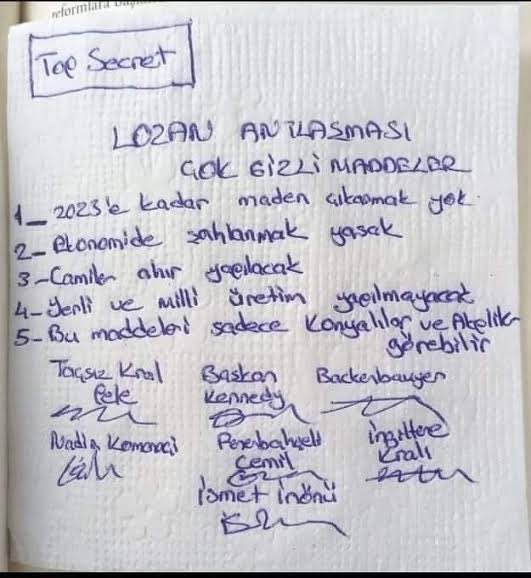 reformlara
Top Secret
LOZAN ANTLASMASI
ÇOK GİZLİ MADDELER
1_ 2023'e kadar maden çıkarmak yok.
2- Ekonomide şahlanmak yasak
3-Camiler ahır yapılacak
4-Yerli ve milli üretim yapılmayacak
5-Bu maddeleri sadece Konyalılar ve
görebilir
Taçsız Kral Başkan Backenbauyer
Pele Kennedy
Nadia Komanaçi Fenerbahçeli İngiltere
Cemil Kralı
İsmet İnönü